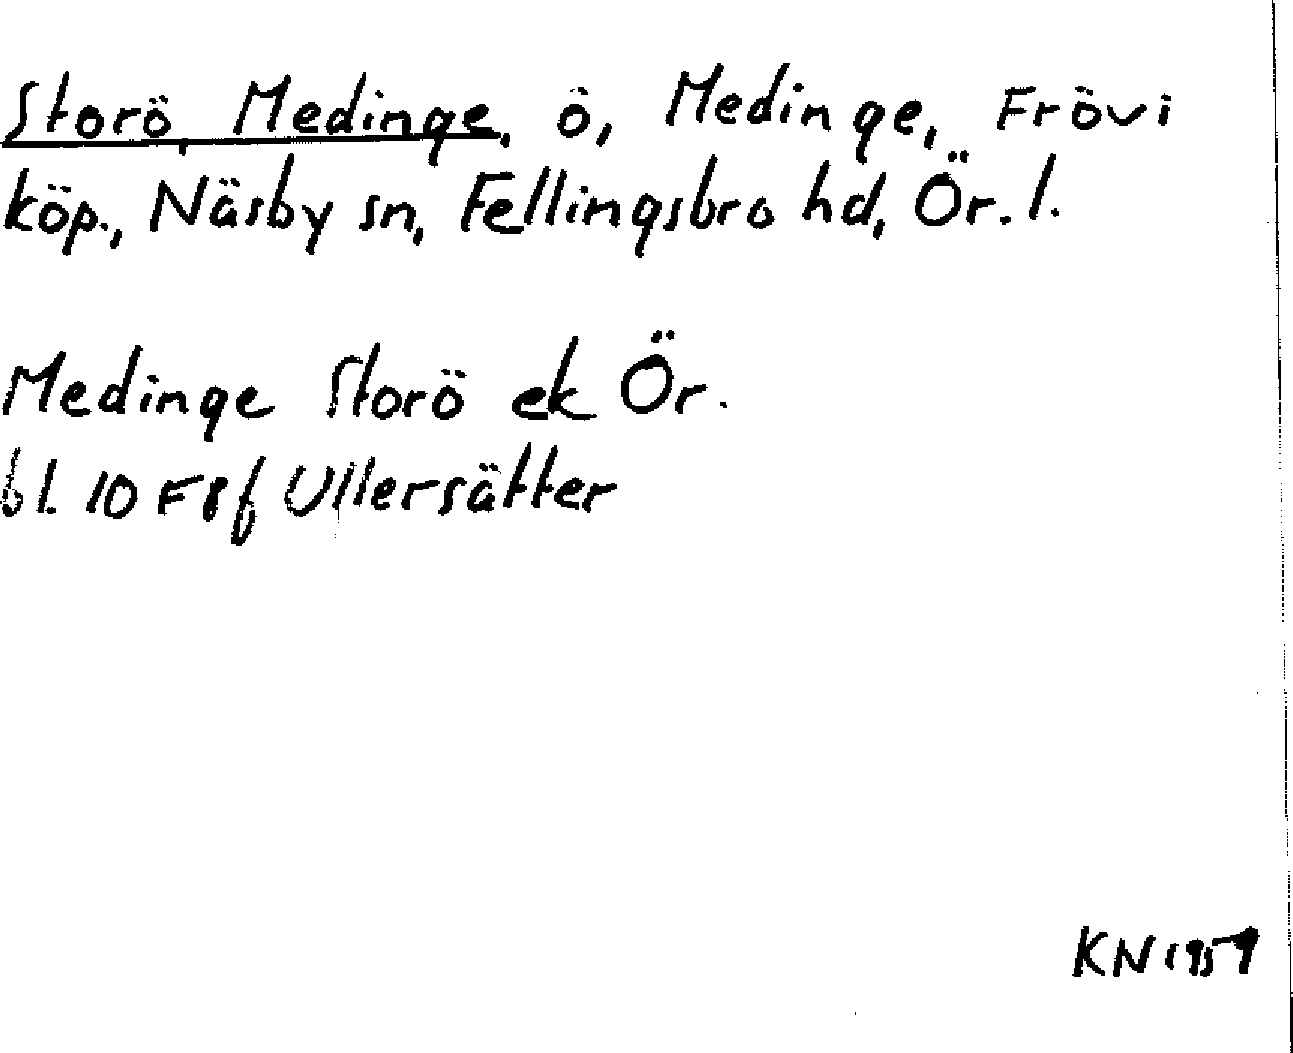 Storö, Medinge, ö, Medinge, Frövi
köp., Näsby sn, Fellingsbro hd, Ör. l.
Medinge Storö ek Ör.
bl. 10 F 8f Ullersätter
KN 1959